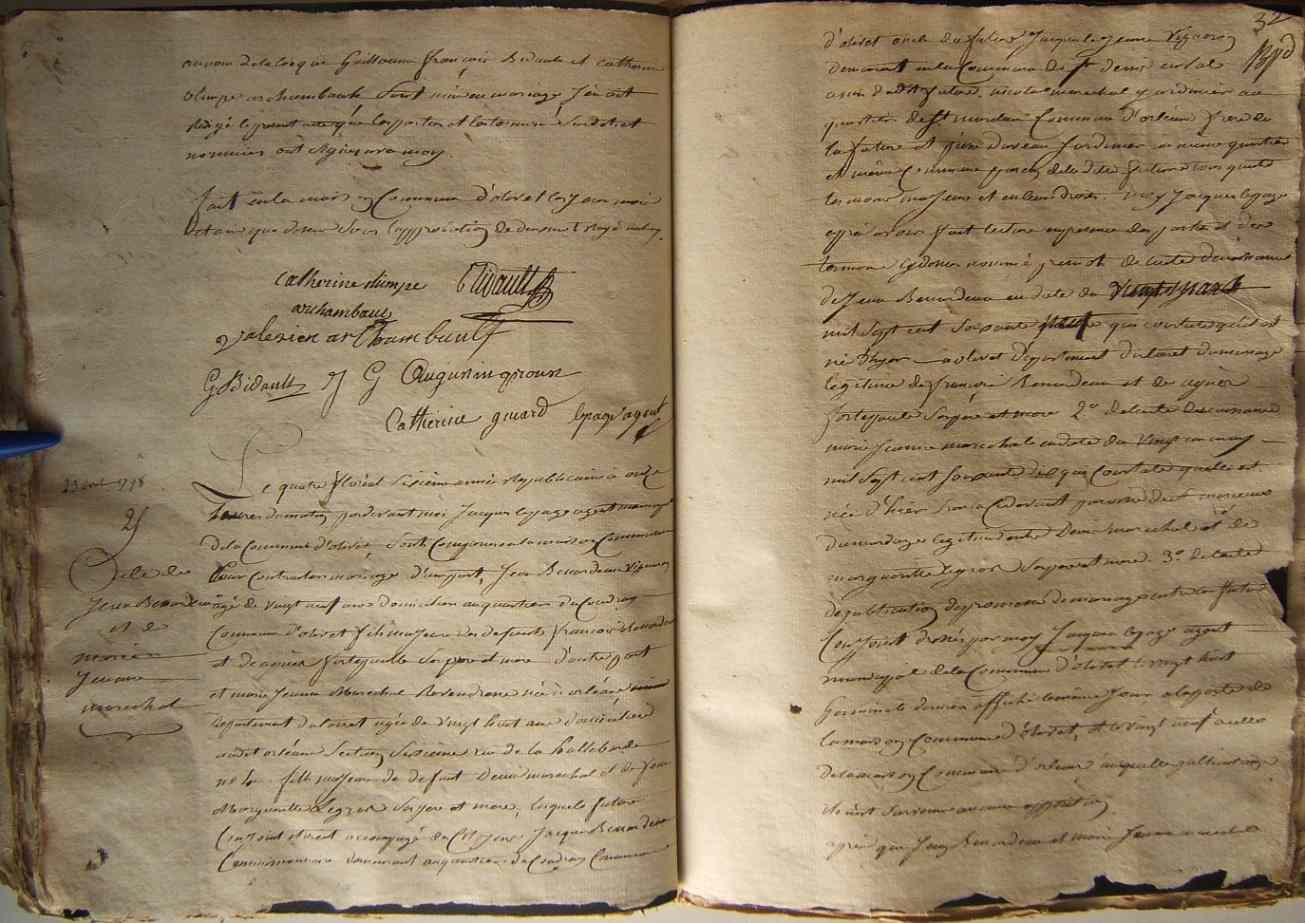 au nom de la loi que Guillaume françois Bidault et catherine
olimpe archambault sont unis en mariage J'en ai
Rédigé le present acte que les parties et les temoins susdits et
nommés ont signés avec moy
fait en la maison Commune d'olivet les Jour mois
et an que dessus
catherine olimpe Bidault
archambault
valerien archambault
G Bidault
Catherine lepage agent
23 avril 1798
25
Acte de
Jean Benardeau
et de
marie
Jeanne
marechal
Le quatre floréal Sixième année Republicaine à onze
heures du matin pardevant moi Jacques lepage agent municipal
de la Commune d'olivet, sont Comparus en la maison Commune
pour Contracter mariage d'une part, Jean Benardeau vigneron
âgé de vingt neuf ans domicilié au quartier du Coudray
Commune d'olivet fils majeur des defunts françois Benardeau
et de agnès fortepaulle ses pere et mere d'autre part
et marie Jeanne Marechal née à orléans
departement du loiret agée de vingt huit ans domiciliée
audit orléans Section Sixième rue de la hallebarde
no 4 fille majeure de defunt Denis marechal et de
Marguerite legros ses pere et mere, lesquels futurs
Conjoints etoient accompagné des Citoyens Jacques Benardeau
demeurant au quartier du Coudray Commune
32
d'olivet oncle du futur Jacques lejeune vigneron
demeurant en la Commune de St denis en val
cousin dudit futur, nicolas marechal Jardinier au
quartier de St marceau Commune d'orléans frere de
la future et Jardinier au même quartier
et même Commune de la dite future tous quatre
temoins majeurs et moy Jacques lepage
après avoir fait lecture en presence des parties et des
temoins cydessus nommé 1er de l'acte de naissance
de Jean Benardeau en date du vingt mars
mil sept cent soixante neuf qui constate qu'il est
né d'hyer à olivet département du loiret du mariage
légitime de françois Benardeau et de agnès
fortepaulle ses pere et mere 2o de l'acte de naissance
marie Jeanne marechal en date du vingt un may
mil sept cent soixante dix qui constate quelle est
née d'hier sur la cidevant paroisse de St marceau
du mariage legitime de Denis marechal et de
marguerite legros ses pere et mere. 3o de l'acte
de publication de promesse de mariage entre les futurs
Conjoints dressés par moy Jacques lepage agent
municipal de la Commune d'olivet le vingt huit
Germinal dernier affiché le même Jour a la porte de
la maison Commune d'olivet, et le vingt neuf a celle
de la maison Commune d'orleans
aucune opposition
après que Jean Benardeau et marie Jeanne marechal